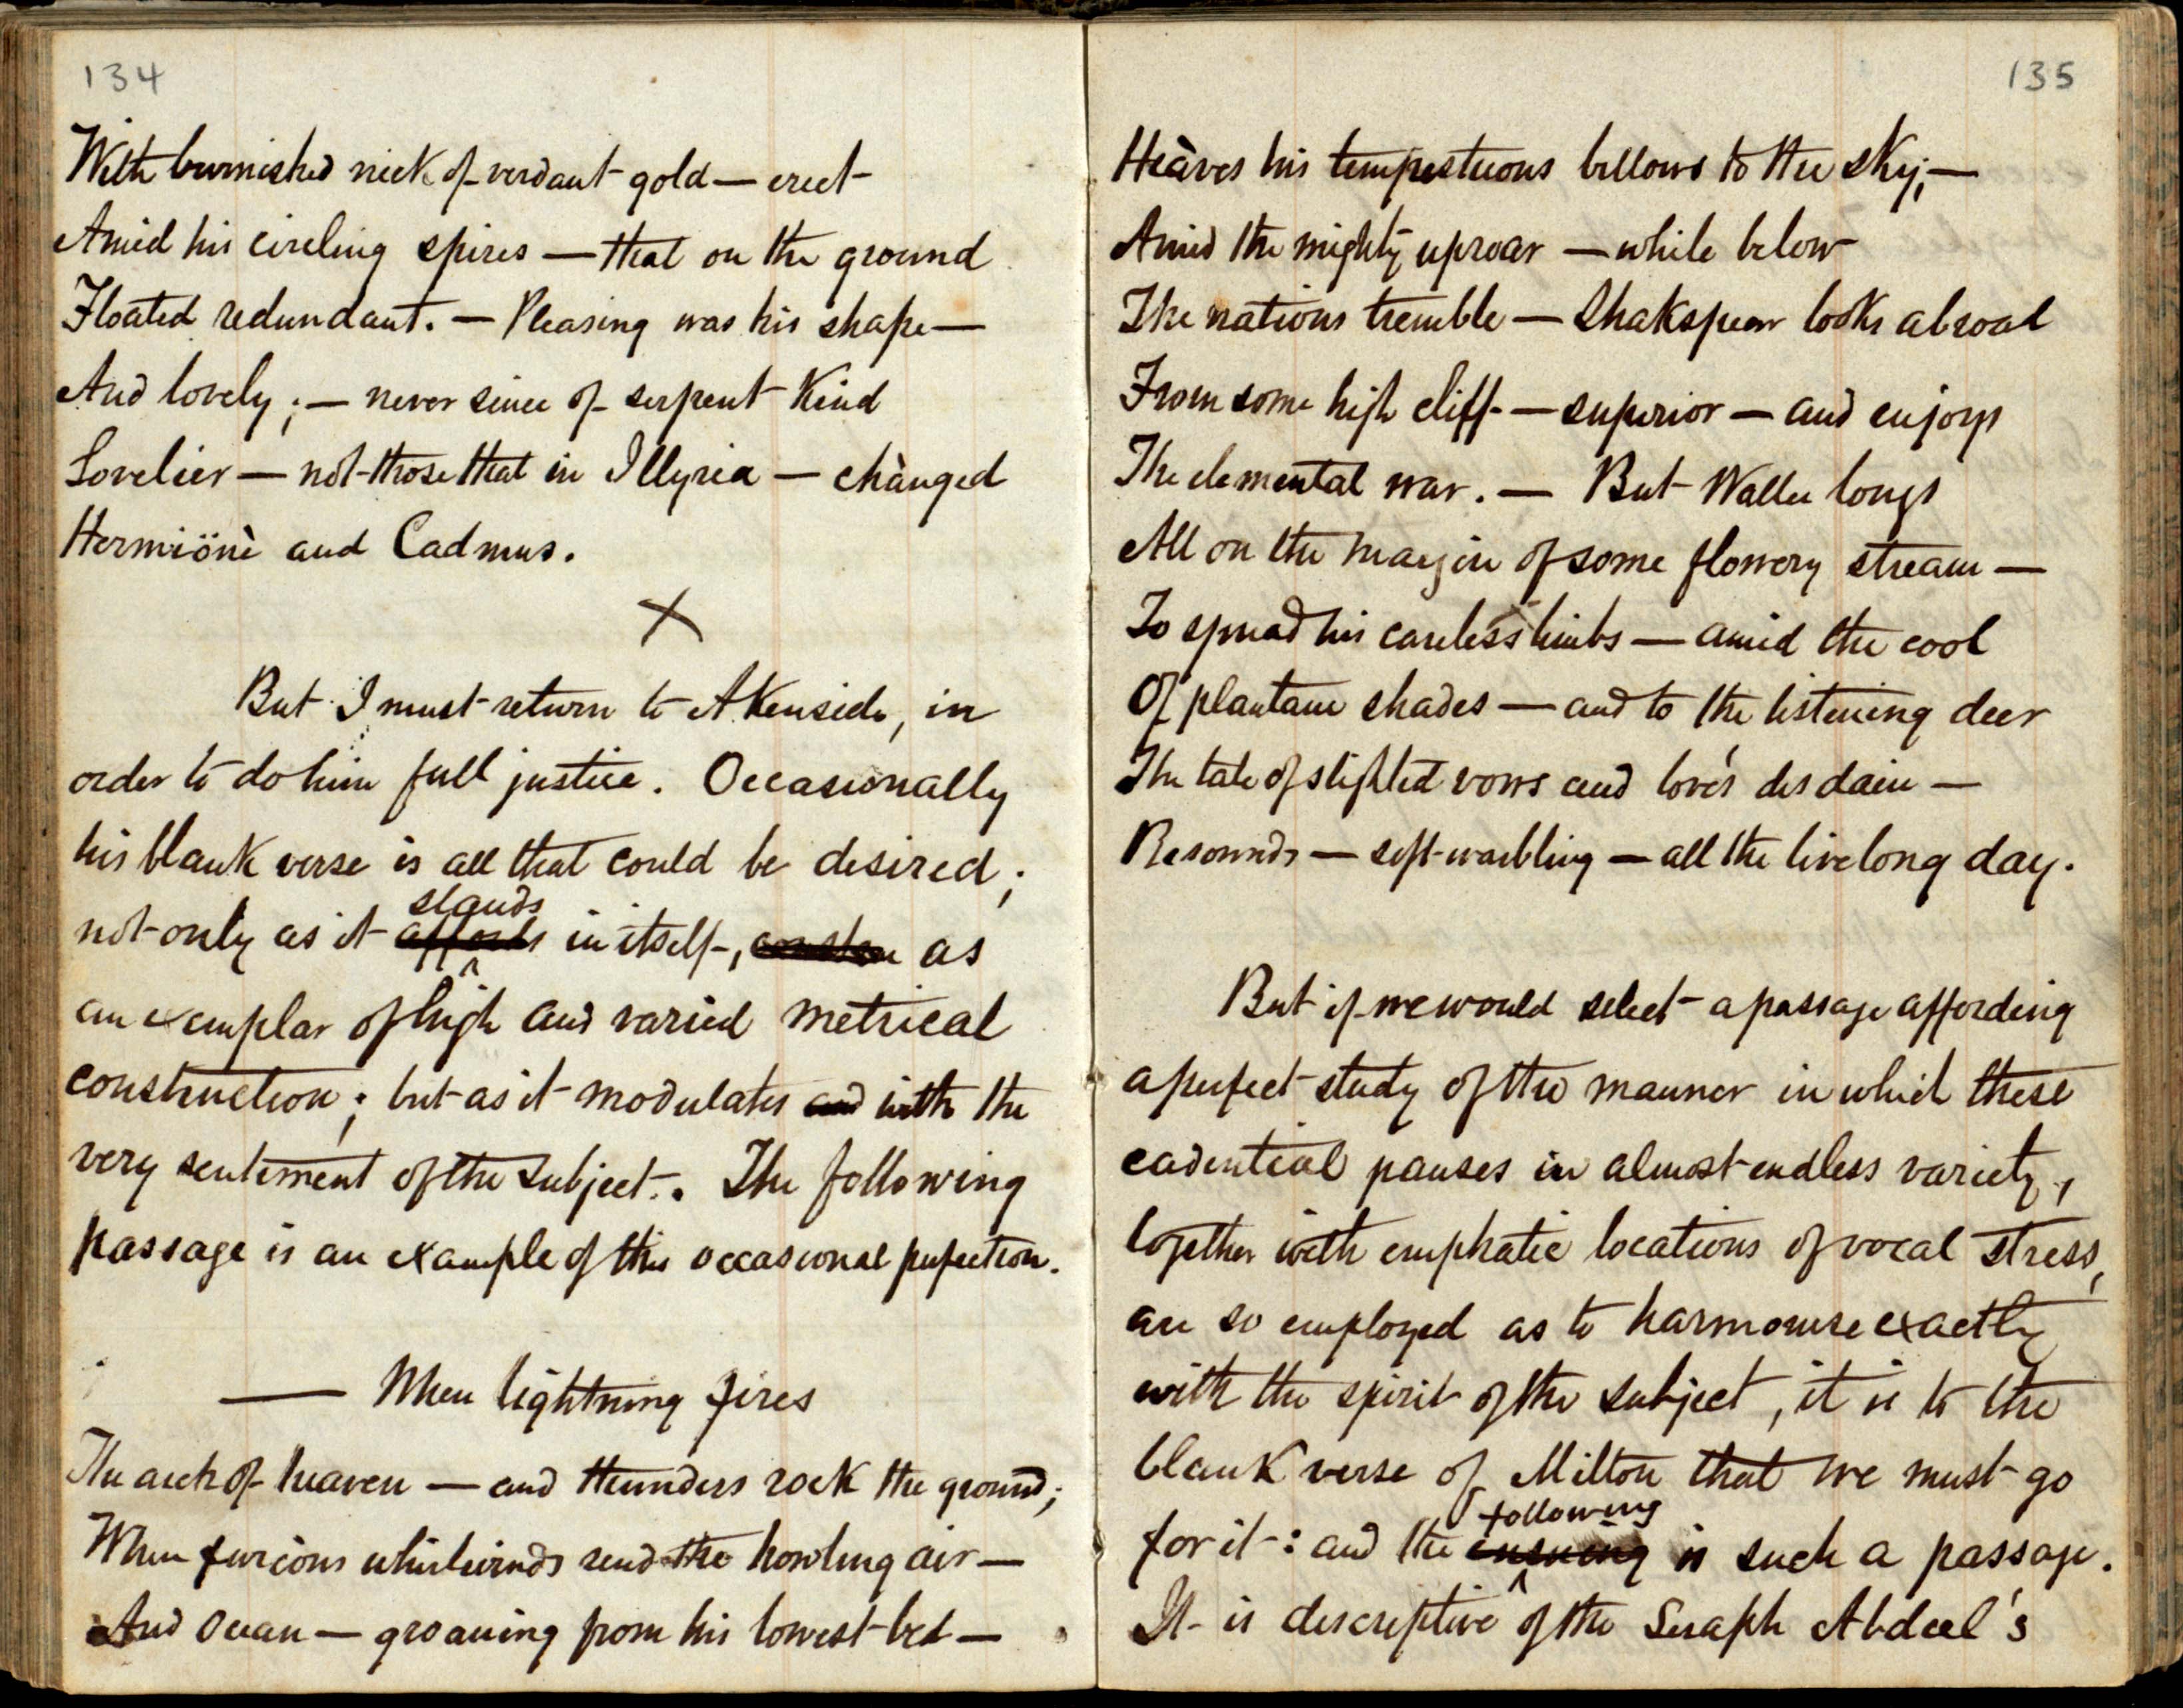 134
With burnished neck of verdant gold — erect
Amid his circling spires — that on the ground
Floated redundant. — Pleasing was his shape —
And lovely; — never since of serpent kind
Lovelier — not those that in Illyria — chànged
Hermiönè and Cadmus.
X
But I must return to Akenside, in
order to do him full justice. Occasionally
his blank verse is all that could be desired;
stands
not only as it affords in itself, as
an exemplar of high and varied metrical
construction; but as it modulates and with the
very sentiment of the subject. The following
passage is an example of this occasional perfection.
— When lightning fires
The arch of heaven — and thunders rock the ground;
When furious whirlwinds rend the howling air —
And Ocean — groaning from his lowest bed —
135
Heàves his tempestuous billows to the sky; —
Amid the mighty uproar — while below
The nations tremble — Shakspear looks abroad
From some high cliff — superior — and enjoys
The elemental war. — But Waller longs
All on the margin of some flowery stream —
To spread his careless limbs — amid the cool
Of plantane shades — and to the listening deer
The tale of slighted vows and love's disdain —
Resounds — soft-warbling — all the livelong day.
But if we would select a passage affording
a perfect study of the manner in which these
cadential pauses in almost endless variety,
together with emphatic locations of vocal stress,
are so employed as to harmonise exactly
with the spirit of the subject, it is to the
blank verse of Milton that we must go
following
for it: and the ensuing is such a passage.
It is descriptive of the Seraph Abdeel's